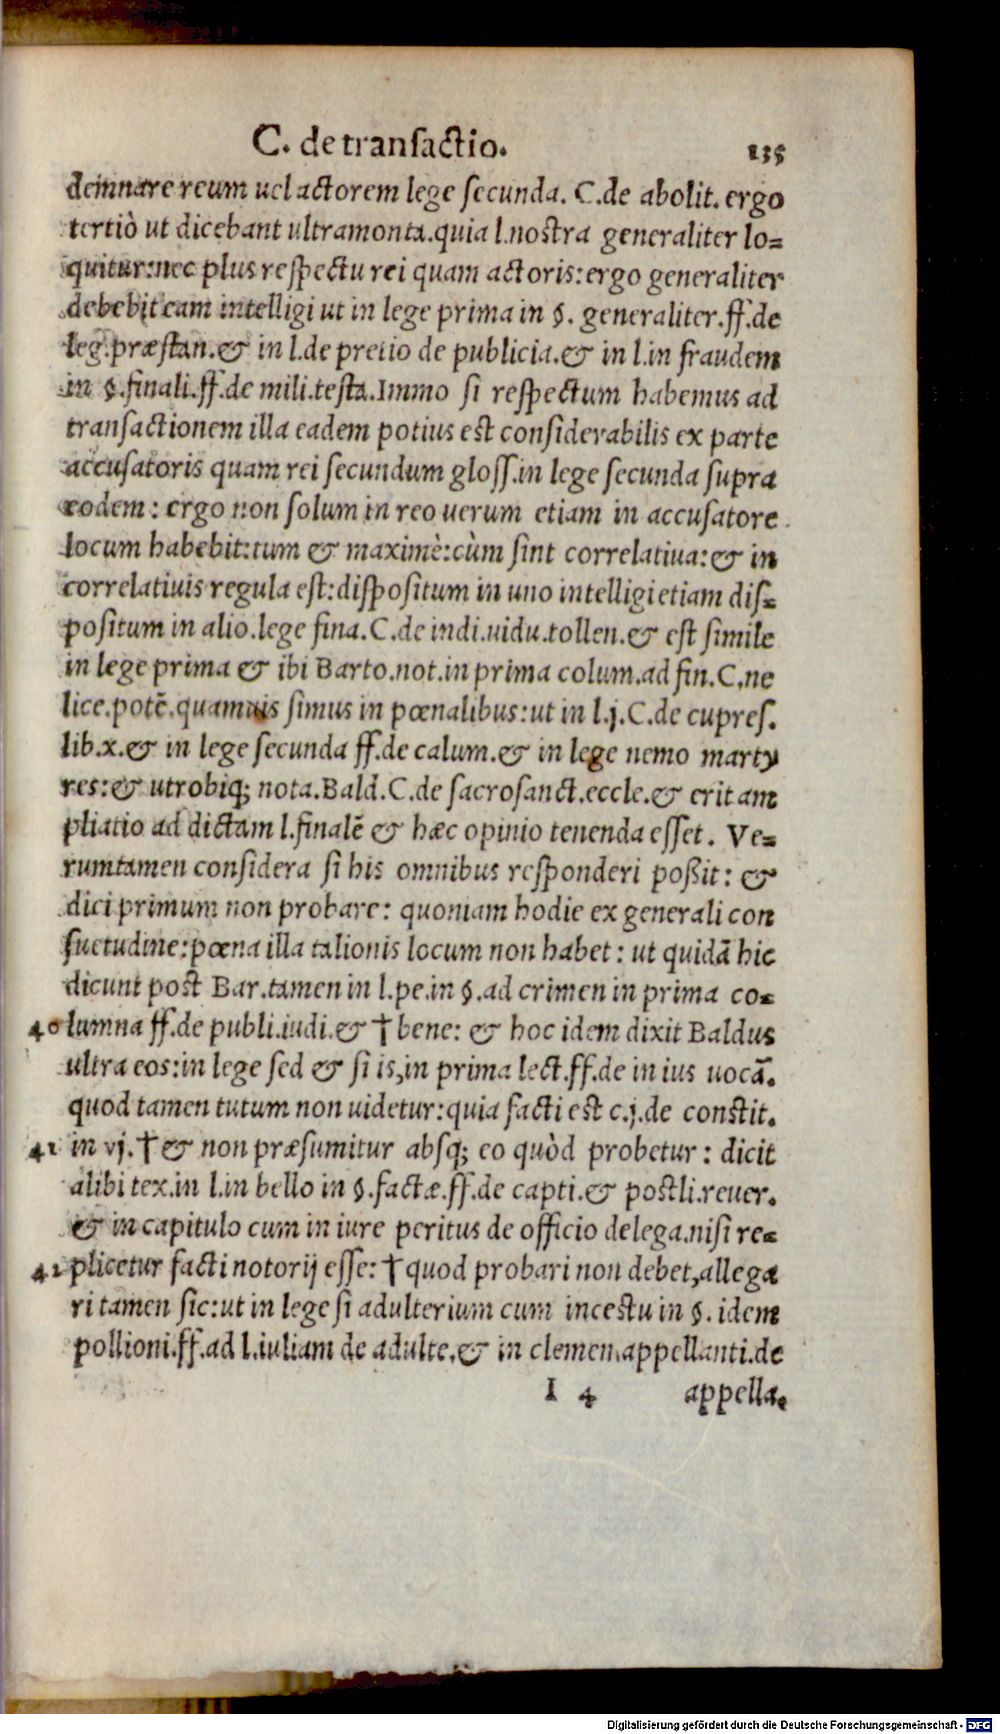 C. de transactio. 135
demnare reum uel actorem lege secunda. C. de abolit. ergo
tertiò ut dicebant ultramonta. quia l. nostra generaliter lo=
quitur: nec plus respectu rei quam actoris: ergo generaliter
debebit eam intelligi ut in lege prima in §. generaliter. ff. de
leg. præstan. & in l. de pretio de publicia. & in l. in fraudem
in §. finali. ff. de mili. testa. Immo si respectum habemus ad
transactionem illa eadem potius est considerabilis ex parte
accusatoris quam rei secundum gloss. in lege secunda supra
eodem: ergo non solum in reo uerum etiam in accusatore
locum habebit: tum & maximè: cùm sint correlatiua: & in
correlatiuis regula est: dispositum in uno intelligi etiam dis=
positum in alio. lege fina. C. de indi. uidu. tollen. & est simile
in lege prima & ibi Barto. not. in prima colum. ad fin. C. ne
lice. potẽ. quamuis simus in pœnalibus: ut in l. j. C. de cupres.
lib. x. & in lege secunda ff. de calum. & in lege nemo marty
res: & utrobiq; nota. Bald. C. de sacrosanct. eccle. & erit am
pliatio ad dictam l. finalẽ & hæc opinio tenenda esset. Ve=
rumtamen considera si his omnibus responderi poßit: &
dici primum non probare: quoniam hodie ex generali con
suetudine: pœna illa talionis locum non habet: ut quidã hic
dicunt post Bar. tamen in l. pe. in §. ad crimen in prima co=
40 lumna ff. de publi. iudi. & † bene: & hoc idem dixit Baldus
ultra eos: in lege sed & si is, in prima lect. ff. de in ius uocã.
quod tamen tutum non uidetur: quia facti est c. j. de constit.
41 in vj. † & non præsumitur absq; eo quòd probetur: dicit
alibi tex. in l. in bello in §. factæ. ff. de capti. & postli. reuer.
& in capitulo cum in iure peritus de officio delega. nisi re=
42 plicetur facti notorij esse: † quod probari non debet, allega
ri tamen sic: ut in lege si adulterium cum incestu in §. idem
pollioni. ff. ad l. iuliam de adulte. & in clemen. appellanti. de
I 4 appella.
Digitalisierung gefördert durch die Deutsche Forschungsgemeinschaft - DFG